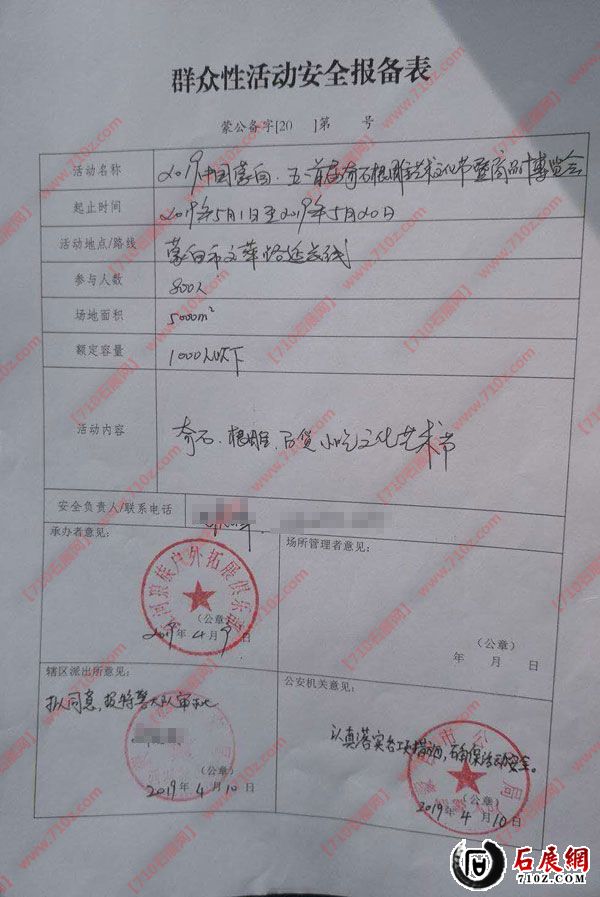 群众性活动安全报备表
蒙公备字[20 ]第 号
活动名称 2019中国蒙自·五一首届奇石根雕艺术文化节暨商品博览会
起止时间 2019年5月1日至2019年5月20日
活动地点/路线 蒙自市文萃路延长线
参与人数 800人
场地面积 5000m²
额定容量 1000人以下
活动内容 奇石、根雕、百货小吃文化艺术节
安全负责人/联系电话
承办者意见:
户外拓展俱乐部
(公章)
2019年4月9日
场所管理者意见:
(公章)
年 月 日
辖区派出所意见:
拟同意,报特警大队审批
(公章)
2019年4月10日
公安机关意见:
认真落实各项措施,确保活动安全。
市公 局
(公章)
2019年4月10日
【710石展网】
www.710z.com
石展網
710Z.COM